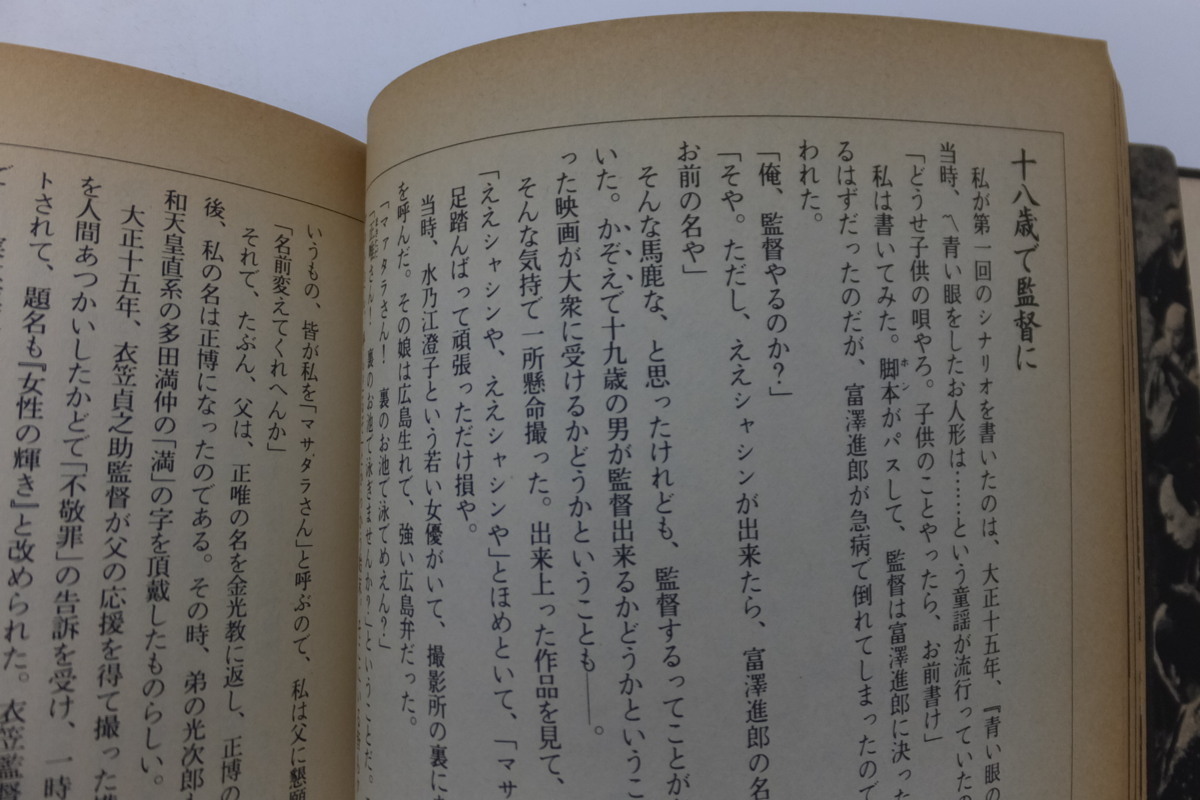 十八歳で監督に
私が第一回のシナリオを書いたのは、大正十五年、『青い眼の
当時、〽青い眼をしたお人形は……という童謡が流行っていたの
「どうせ子供の唄やろ。子供のことやったら、お前書け」
私は書いてみた。脚本がパスして、監督は富澤進郎に決った
ホン
るはずだったのだが、富澤進郎が急病で倒れてしまったので
われた。
「俺、監督やるのか?」
「そや。ただし、ええシャシンが出来たら、富澤進郎の名
お前の名や」
そんな馬鹿な、と思ったけれども、監督するってことが
いた。かぞえで十九歳の男が監督出来るかどうかというこ
った映画が大衆に受けるかどうかということも――。
そんな気持で一所懸命撮った。出来上った作品を見て、
「ええシャシンや、ええシャシンや」とほめといて、「マサ
足踏んばって頑張っただけ損や。
当時、水乃江澄子という若い女優がいて、撮影所の裏に
を呼んだ。その娘は広島生れで、強い広島弁だった。
「マァタラさん! 裏のお池で泳てめえん?」
裏のお池で泳ぎませんか?」ということだ。
いうもの、皆が私を「マサダラさん」と呼ぶので、私は父に懇願
「名前変えてくれへんか」
それで、たぶん、父は、正唯の名を金光教に返し、正博の
後、私の名は正博になったのである。その時、弟の光次郎
和天皇直系の多田満仲の「満」の字を頂戴したものらしい。
大正十五年、衣笠貞之助監督が父の応援を得て撮った
を人間あつかいしたかどで「不敬罪」の告訴を受け、一時
トされて、題名も『女性の輝き』と改められた。衣笠監督